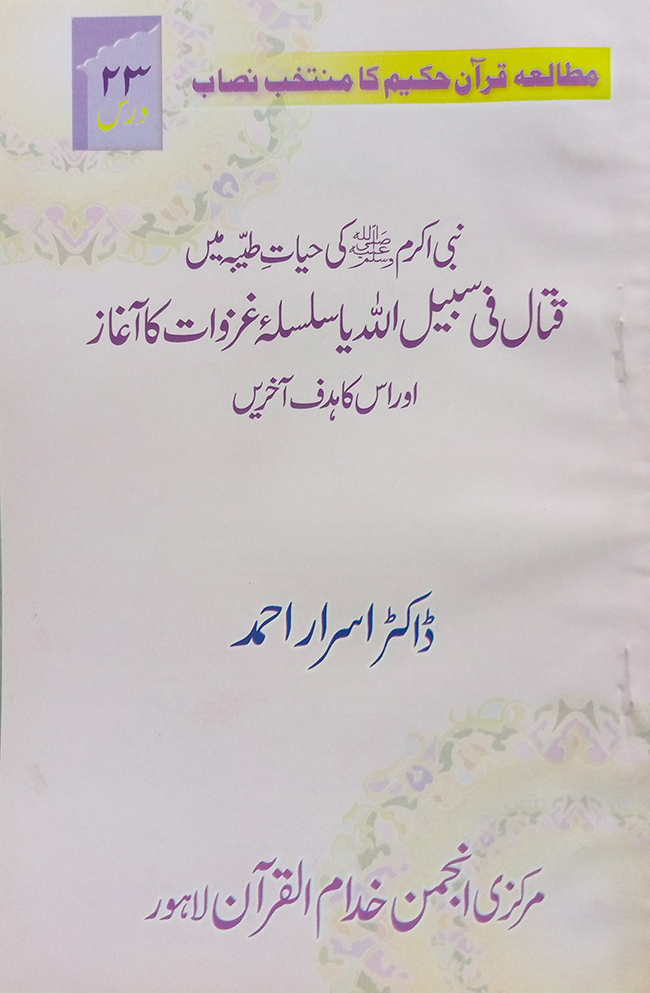 مطالعہ قرآن حکیم کا منتخب نصاب
۲۳
درس
نبی اکرم ﷺ کی حیاتِ طیّبہ میں
قتال فی سبیل اللہ یا سلسلۂ غزوات کا آغاز
اور اس کا ہدف آخریں
ڈاکٹر اسرار احمد
مرکزی انجمن خدام القرآن لاہور